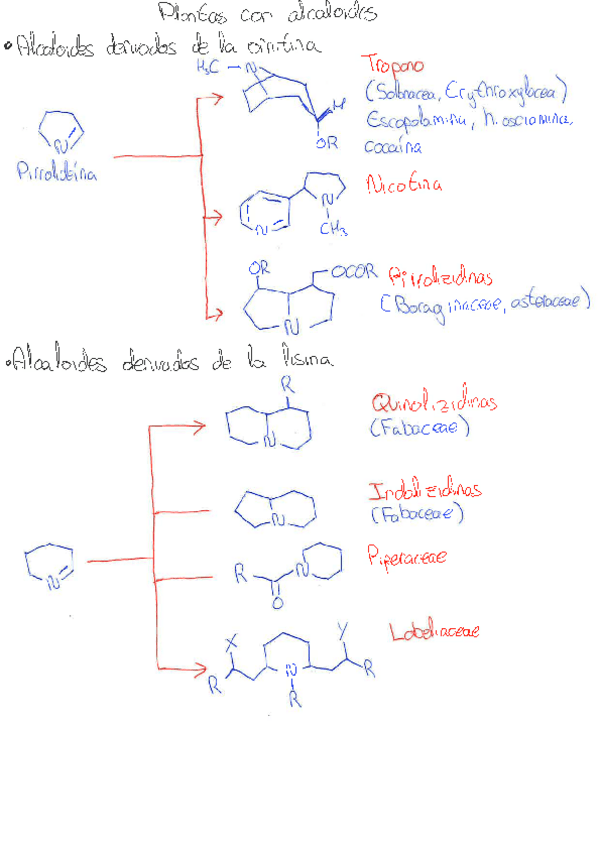 Plantas con alcaloides
• Alcaloides derivados de la ornitina
Tropano
(Solanacea, Erythroxylacea)
Escopolamina, hiosciamina,
cocaína
H₃C
N
H
OR
N
Pirrolideína
Nicotina
N
N
CH₃
OR
OCOR
N
Pirrolizidinas
(Boraginaceae, asteraceae)
• Alcaloides derivados de la lisina
R
N
Quinolizidinas
(Fabaceae)
N
Indolizidinas
(Fabaceae)
N
R
N
O
Piperaceae
Lobeliaceae
X
Y
R
N
R
R